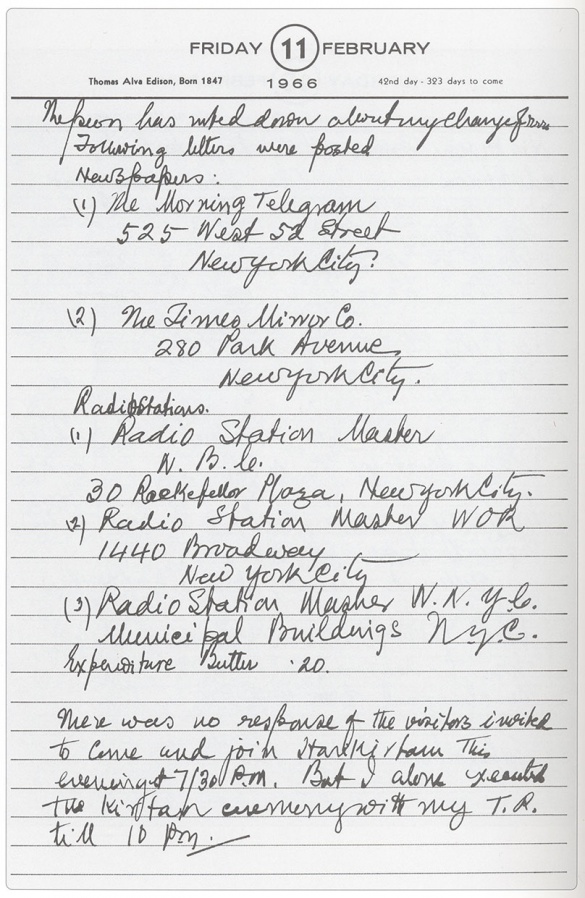 FRIDAY 11 FEBRUARY
Thomas Alva Edison, Born 1847 1966 42nd day - 323 days to come
The peon has noted down about my change of room
Following letters were posted
Newspapers:
(1) The Morning Telegram
525 West 52 Street
New york City.
(2) The Times Mirror Co.
280 Park Avenue,
New york City.
Radio Stations.
(1) Radio Station Master
N. B. C.
30 Rockefellor Plaza, New york City.
2) Radio Station Master WOR
1440 Broadway
New York City
(3) Radio Station Master W. N. Y. C.
Municipal Buildings N.y.C.
Expenditure Butter .20.
There was no response of the visitors invited
to come and join Harikirtan This
evening at 7/30 P.m. But I alone executed
the Kirtan ceremony with my T.R.
till 10 Pm.